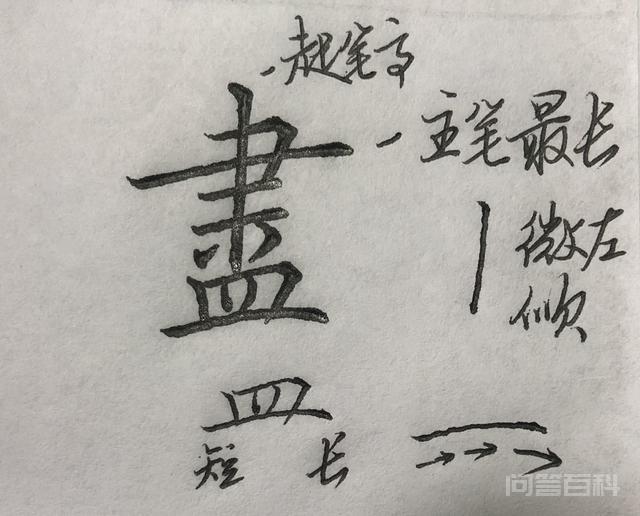 起笔高
盡
主笔最长
微左
倾
皿
短 长
问答百科